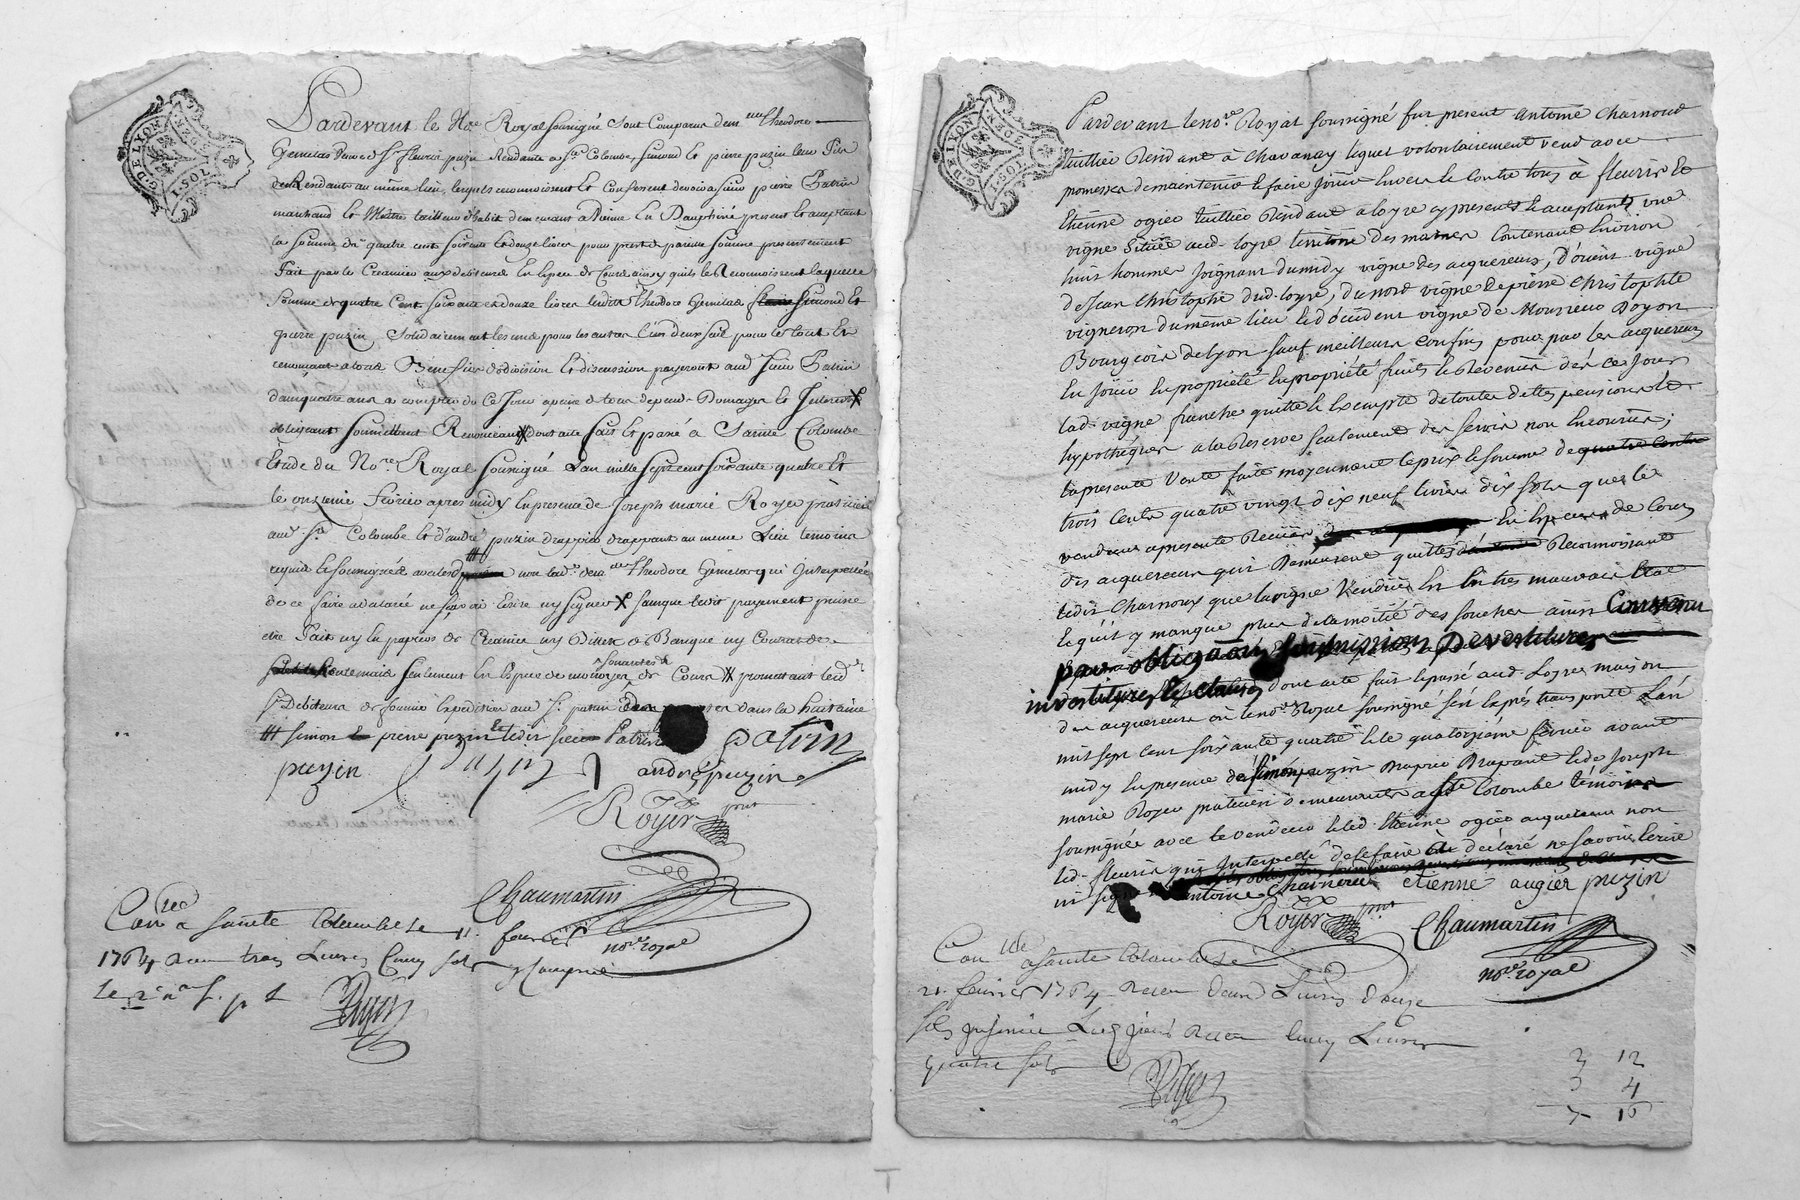 G. DE LYON
1 SOL
Pardevant le No.re Royal Soussigné Sont Comparus dem.lle Theodore
Veuve de S.r fleurie puzin Rendante a S.te Colombe, Simond et pierre puzin
demeurants au même lieu, lesquels reconnoissent et Confessent devoir a Sieur pierre Patrin
marchand et Maitre tailleur d'habit demeurant a Vienne En Dauphiné present et acceptant
la Somme de quatre cent Soixante et douze livres pour prest de pareille Somme presentement
Fait par le Creancier aux debiteurs En Espece de Cours ainsy quils le Reconnoissent laquelle
Somme de quatre Cent Soixante et douze livres lesdits Theodore Simond Et
pierre puzin Solidairement les uns pour les autres l'un deux Seul pour le tout Et
renonçant a tous Benefices de division Et discussion payeront aud Sieur Patrin
dans quatre ans a compter de Ce Jour a peine de tous depens Domages et Interets
obligeant Soumettant Renonceant dont acte fait et passé a Sainte Colombe
Etude du No.re Royal Soussigné L'an mille Sept cent Soixante quatre Et
le onzieme Fevrier apres midy En presence de Joseph marie Royer praticien
aud S.te Colombe Et d'andré puzin drappier drappant au meme Lieu temoins
requis et soussignés avec lesd non lad.e dem.lle Theodore qui Interpellée
de ce faire a declaré ne Savoir Ecrire ny Signer Sans que ledit payement puisse
etre Fait ny En papiers de Creance ny Billets de Banque ny
Seulement En Espece de monoyes Sonantes de Cours promettant
S.r Debiteurs de fournir Expedition aud S.r patrin dans la huitaine
simon pierre puzin ledit sieur Patrin
patrin
puzin
andré puzin
Royer pnt
Chaumartin
no.re royal
Con.lé a Sainte Colombe le 11.
fevrier
1764 Recu trois Livres Cinq sols
G. DE LYON
1 SOL
Pardevant le no.re Royal soussigné fut present antoine charnoud
tuillier Rendant à Chavanay lequel volontairement vend avec
promesse de maintenir et faire Jouir Envers et Contre tous à fleurie et
Etienne ogier tuillier Rendant a loyre cy presents et acceptants une
vigne Situëe aud. loyre territoire des Contenant Environ
huit hommes Joignant du midy vigne des acquereurs, d'orient vigne
de Jean Christophe dud. loyre, du nord vigne de pierre Christophle
vigneron du même lieu et d'occident vigne de Monsieur Doyon
Bourgeois de lyon sauf meilleurs confins pour par les acquereurs
En Jouir En proprieté En proprieté fruits et Revenus dès ce Jour
lad. vigne franche quitte et Exempte de toutes dettes pensions et
hypotheques a la Reserve Seulement des servis non Encourus;
la presente Vente faite moyennant le prix et somme de quatre cents
trois Cents quatre vingt dix neuf livres dix sols que le
vendeur a presente Recües En Especes de Cours
des acquereurs qui Demeurent quittes Reconnoissant
ledit Charnoux que la vigne Vendüe En En très mauvais Etat
et qu'il y manque plus de la moitié des souches ainsi Convenu
par obligãon soûmission Devestitures
investitures et clauses dont acte fait et passé aud. Loyre maison
des acquereurs où le no.re Royal soussigné s'est Exprés transporté L'an
mil sept cent soixante quatre et le quatorzieme fevrier avant
midy En presence de simon puzin Drapier Drapant et de Joseph
marie Royer praticien Demeurants a S.te Colombe témoins
soussignés avec le vendeur et led. Etienne ogier acquereur non
led. fleurie qui Interpellé de le faire a déclaré ne savoir Ecrire
ni signer antoine charnoud etienne augier puzin
Royer pnt
Chaumartin
no.re royal
Con.lé a Sainte Colombe le
21. fevrier 1764 Receu deux Livres douze
sols Receu Cinq Livres
quatre sols
2 12
5 4
7 16